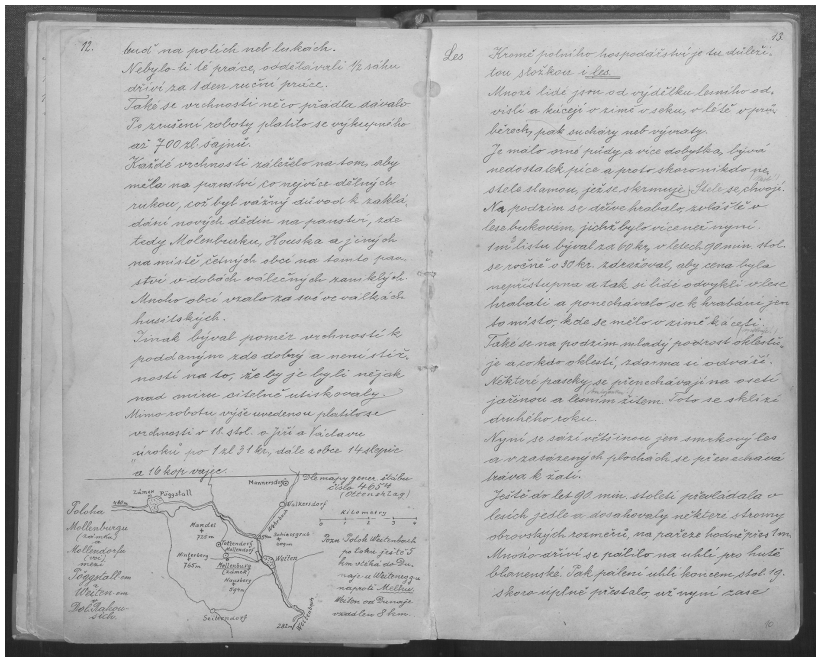 12.
buď na polích neb lukách.
Nebylo-li té práce, oddělávali 1/2 sáhu
dříví za 1 den ruční práce.
Také se vrchnosti něco přádla dávalo.
Po zrušení roboty platilo se výkupného
až 700 zl. šajnů.
Každé vrchnosti záleželo na tom, aby
měla na panství co nejvíce dělných
rukou, což byl vážný důvod k zaklá-
dání nových dědin na panství, zde
tedy Molenburku, Houska a jiných
na místě četných obcí na tomto pan-
ství v dobách válečných zaniklých.
Mnoho obcí vzalo za své ve válkách
husitských.
Jinak býval poměr vrchností k
poddaným zde dobrý a není stíž-
ností na to, že by je byli nějak
nad míru citelně utiskovaly.
Mimo robotu výše uvedenou platilo se
vrchnosti v 18. stol. o Jiří a Václavu
"úroků" po 1 zl 31 kr, dále z obce 14 slepic
a 16 kop vajec.
Poloha
Mollenburgu
(zámku)
a
Mollendorfu
(vsi)
mezi
Pöggstall em
a
Weiten em
Dle mapy gener. štábu
číslo 4654
(Ottenschlag)
Kilometry
0 1 2 3 4
Pozn. Potok Weitenbach
po toku ještě 5
km vtéká do Du-
naje u Weitenegg-u
naproti Melku.
Weiten od Dunaje
vzdálen 8 km.
Zámek
Pöggstall
Mannersdorf
Walkersdorf
Mandel
725 m
Hinterberg
765 m
Mollendorf
Mollenburg
(zámek)
Weiten
Seiterndorf
Weitenbach
13.
Les
Kromě polního hospodářství je tu důleži-
tou složkou i les.
Mnozí lidé jsou od výdělku lesního od-
vislí a kácejí v zimě v seku, v létě v prů-
běrech, pak sucháry neb vývraty.
Je málo orné půdy, a více dobytka, bývá
nedostatek píce a proto skoro nikdo ne-
stele slamou, jež se skrmuje. Stele se chvojí.
Na podzim se dříve hrabalo, zvláště v
lese bukovém, jichž bylo více než nyní.
1 m³ listu býval za 60 kr, v letech 90 min. stol.
se ročně o 30 kr. zdražoval, aby cena byla
nepřístupna a tak si lidé odvykli v lese
hrabati a ponechávalo se k hrabání jen
to místo, kde se mělo v zimě káceti.
Také se na podzim mladý podrost oklestu-
je a co kdo oklestí, zdarma si odváží.
Některé paseky se přenechávají na osetí
jařinou a lesním žitem. Toto se sklízí
druhého roku.
Nyní se sází většinou jen smrkový les
a v zasázených plochách se přenechává
tráva k žatí.
Ještě do let 90 min. století převládala v
lesích jedle a dosahovaly některé stromy
obrovských rozměrů, na pařeze hodně přes 1 m.
Mnoho dříví se pálilo na uhlí pro hutě
blanenské. Pak pálení uhlí koncem stol. 19.
skoro úplně přestalo, až nyní zase